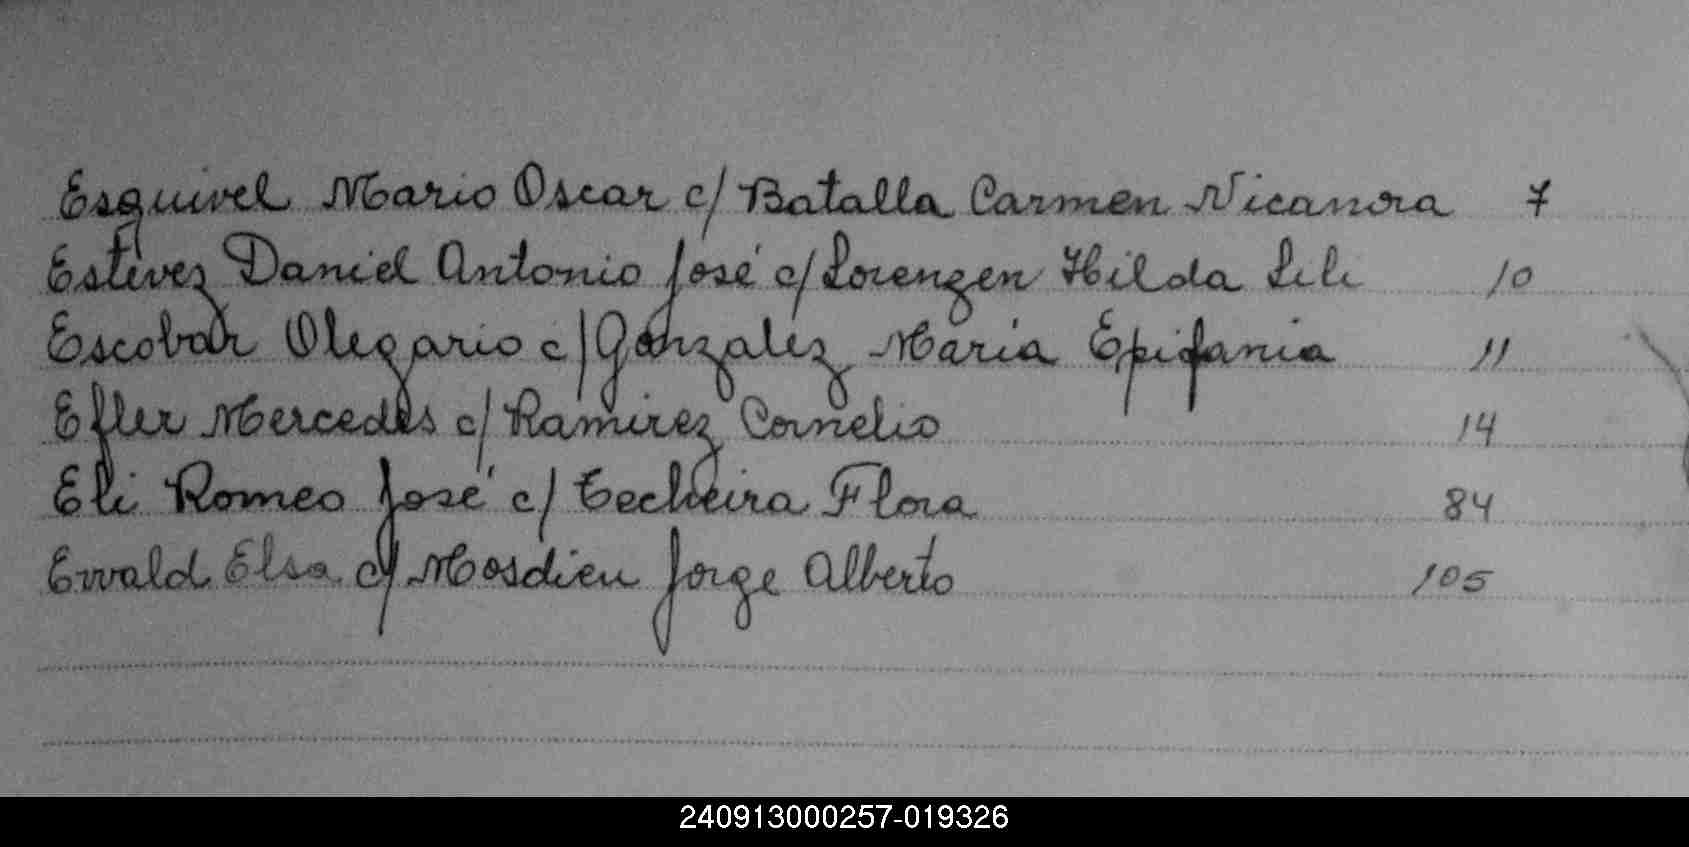 Esquivel Mario Oscar c/ Batalla Carmen Nicanora 7
Estévez Daniel Antonio José c/ Lorenzen Hilda Lili 10
Escobar Olegario c/ Gonzalez María Epifania 11
Efler Mercedes c/ Ramirez Cornelio 14
Eli Romeo José c/ Techeira Flora 84
Ewald Elsa c/ Mosdien Jorge Alberto 105
240913000257-019326